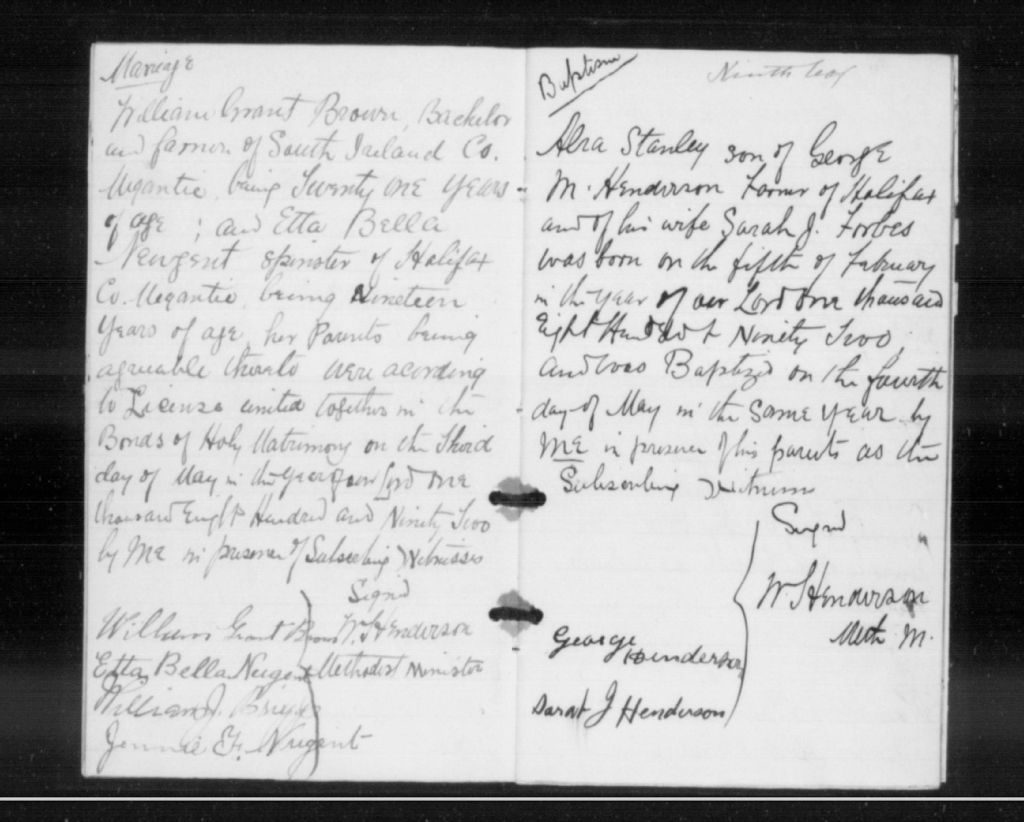 Marriage
William Grant Brown, Bachelor
and farmer of South Ireland Co.
Megantic, being Twenty one Years
of age; and Etta Bella
Newgent spinster of Halifax
Co. Megantic, being Nineteen
Years of age, her Parents being
agreeable thereto were acording
to License united together in the
Bonds of Holy Matrimony on the Third
day of May in the year of our Lord one
thousand Eight Hundred and Ninety Two
by Me in presence of Subscribing Witnesses
Signd
William Grant Brown W. S Henderson
Etta Bella Nugent Methodist Minister
William J.
Jennie E. Nugent
Baptism
Ninth leaf
Stanley son of George
M. Henderson Farmer of Halifax
and of his wife Sarah J. Forbes
was born on the fifth of February
in the year of our Lord one thousand
Eight Hundred & Ninety Two,
and was Baptized on the fourth
day of May in the same year by
Me in presence of his parents as the
Subscribing Witnesses
Signd
W. S Henderson
Meth M.
George Henderson
Sarah J Henderson